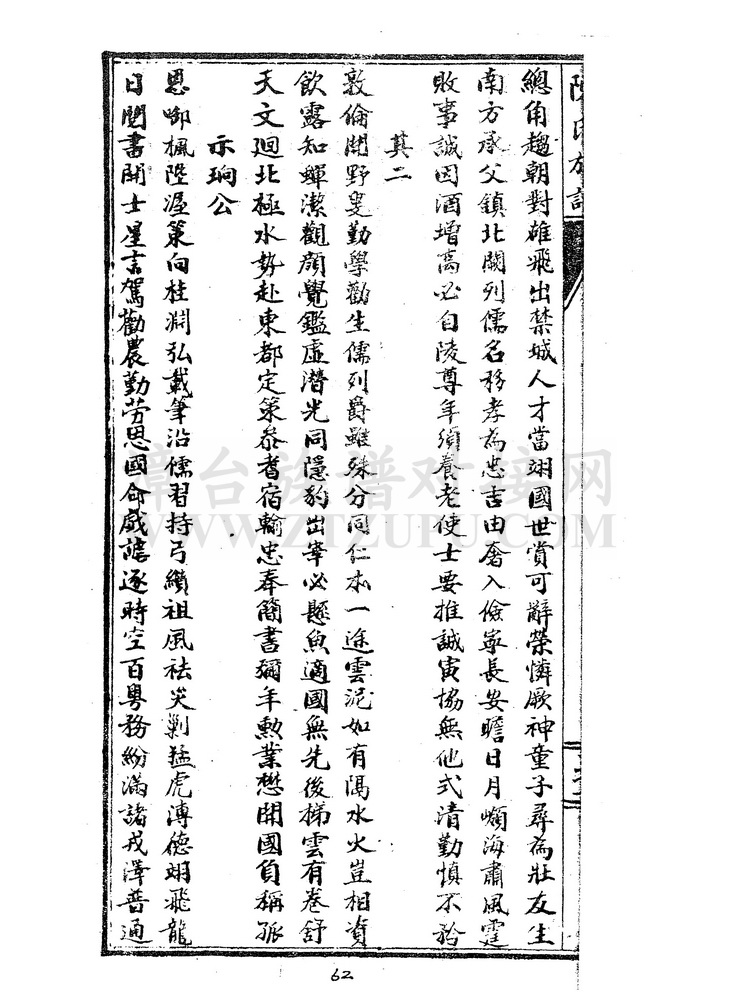 陳氏族譜
總角趨朝對雄飛出禁城人才當翊國世賞可辭榮憐厥神童子尋為壯友生
南方承父鎮北闕列儒名移孝為忠吉由奢入儉寧長安瞻日月嶺海肅風霆
敗事誠因酒增高必自陵尊年須養老使士要推誠寅協無他式清勤慎不矜
其二
敦倫開野叟勤學勸生儒列爵雖殊分同仁本一途雲泥如有隔水火豈相資
飲露知蟬潔觀顏覺鑑虛潛光同隱豹出宰必懸魚適國無先後梯雲有卷舒
天文迴北極水勢赴東都定策參耆宿輸忠奉簡書彌年勲業懋開國負稱孤
示珦公
恩啣楓陛渥策向桂淵弘載筆沿儒習持弓纘祖風袪災剿猛虎溥德翊飛龍
日閱書開士星言駕勸農勤勞思國命戲謔逐時空百粵務紛滿諸戎澤普通
章台族谱对接网
WWW.ZTZUPU.COM
62